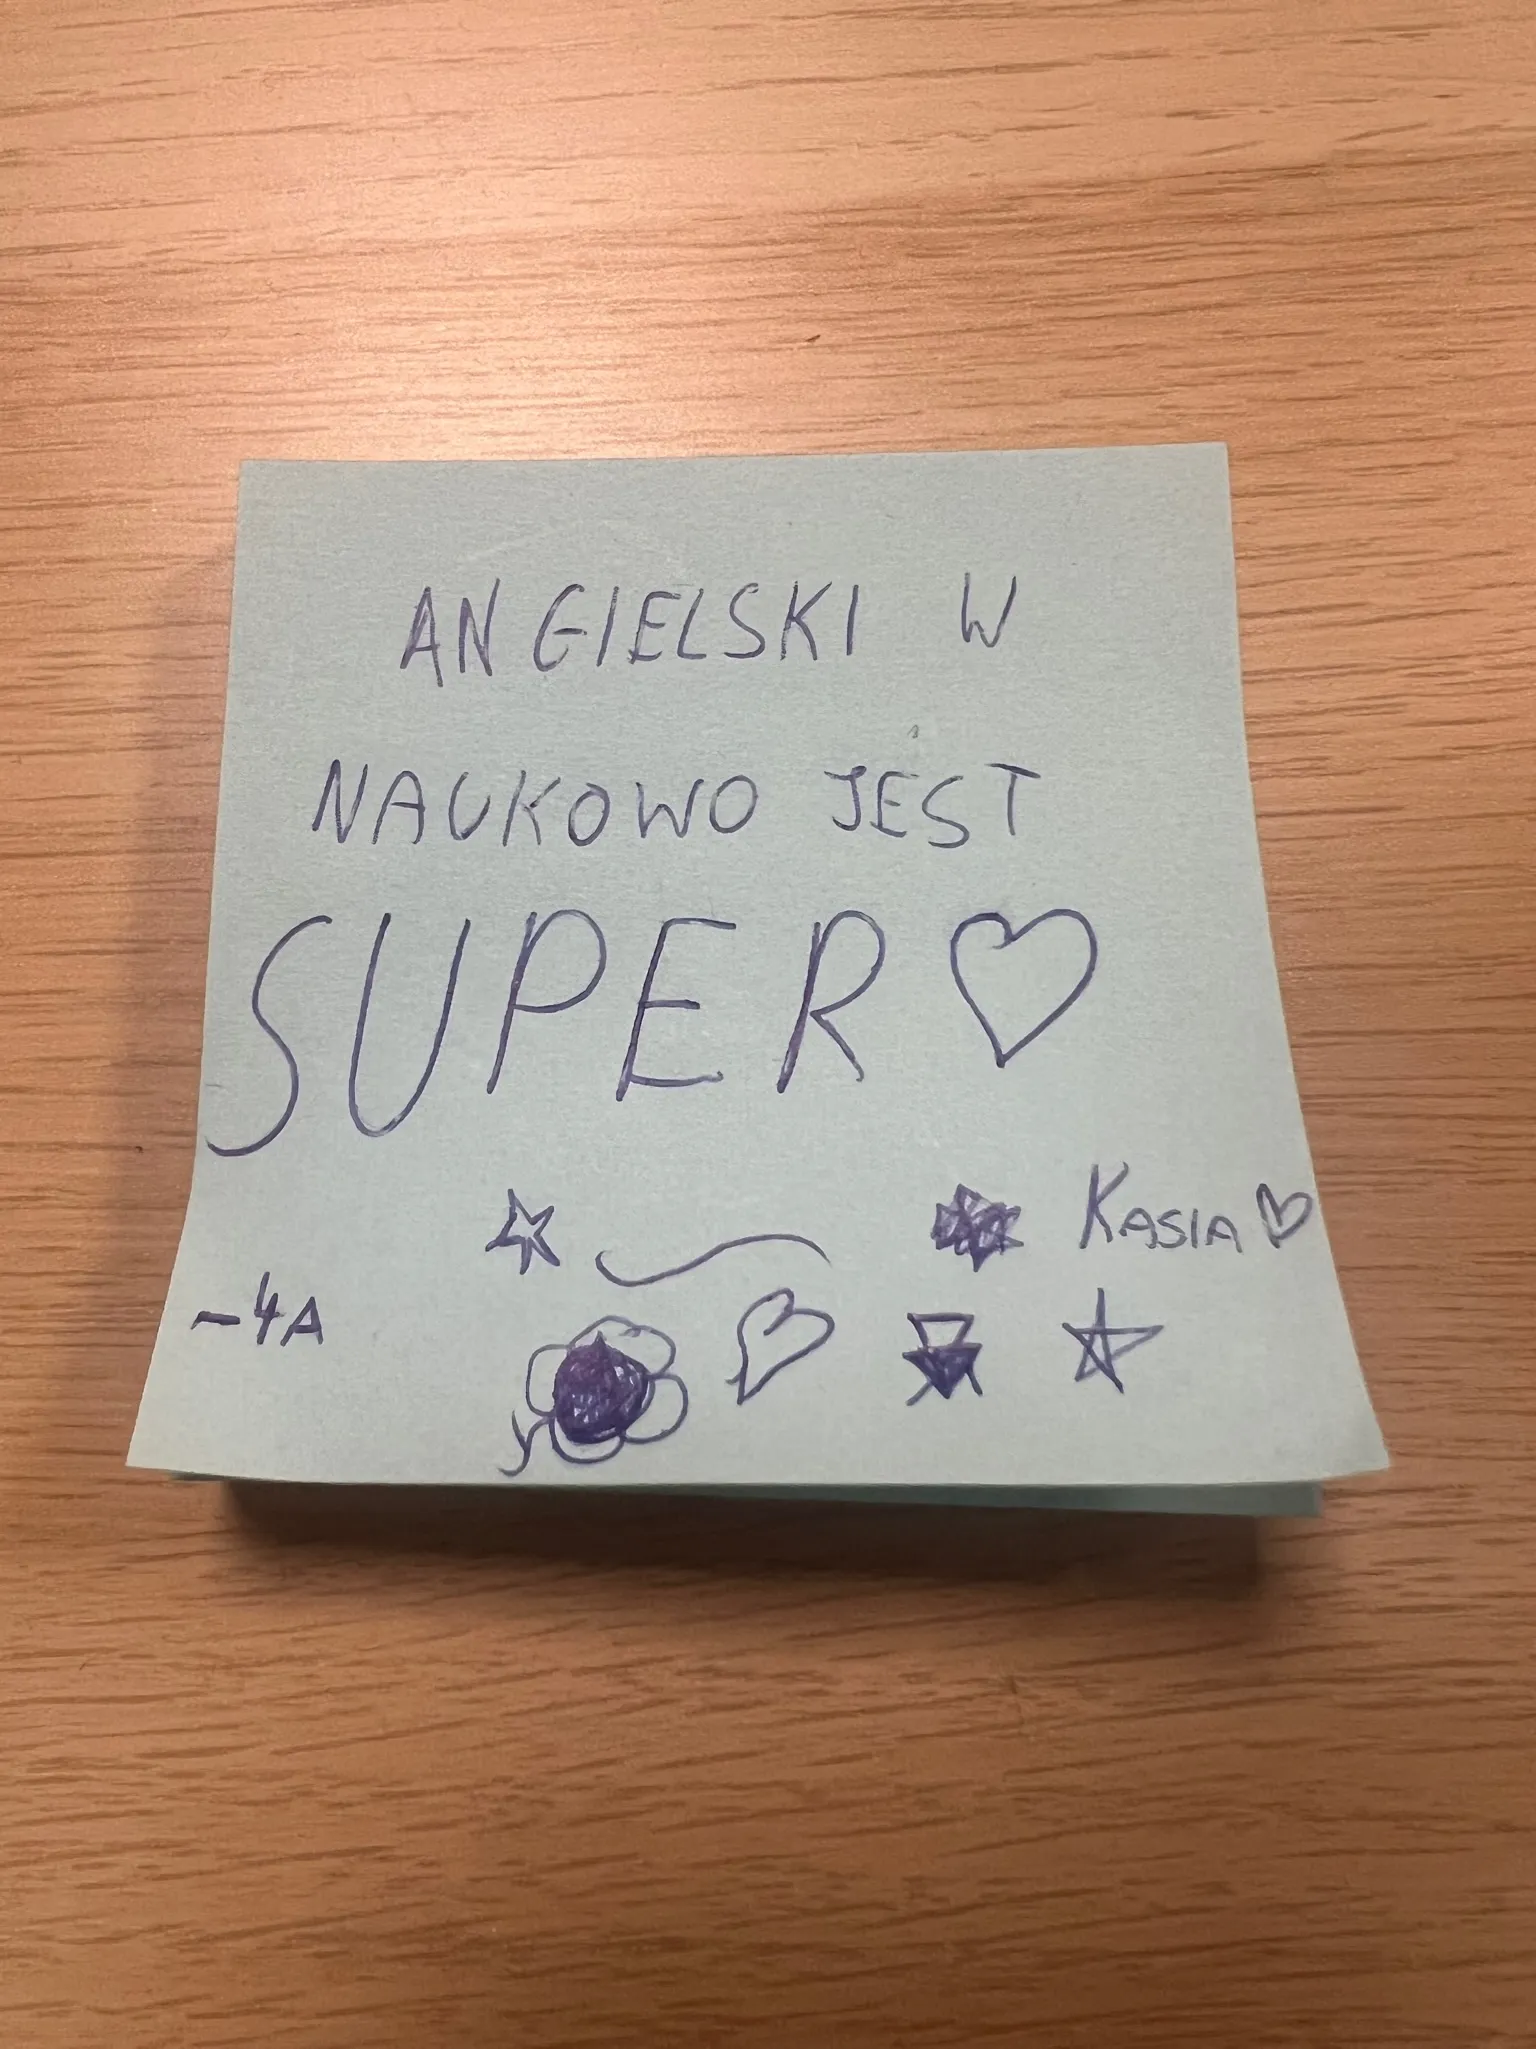 ANGIELSKI W
NAUKOWO JEST
SUPER ♡
KASIA ♡
-4A